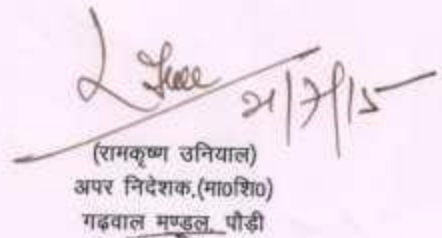 (रामकृष्ण उनियाल)
अपर निदेशक,(मा०शि०)
गढ़वाल मण्डल, पौड़ी